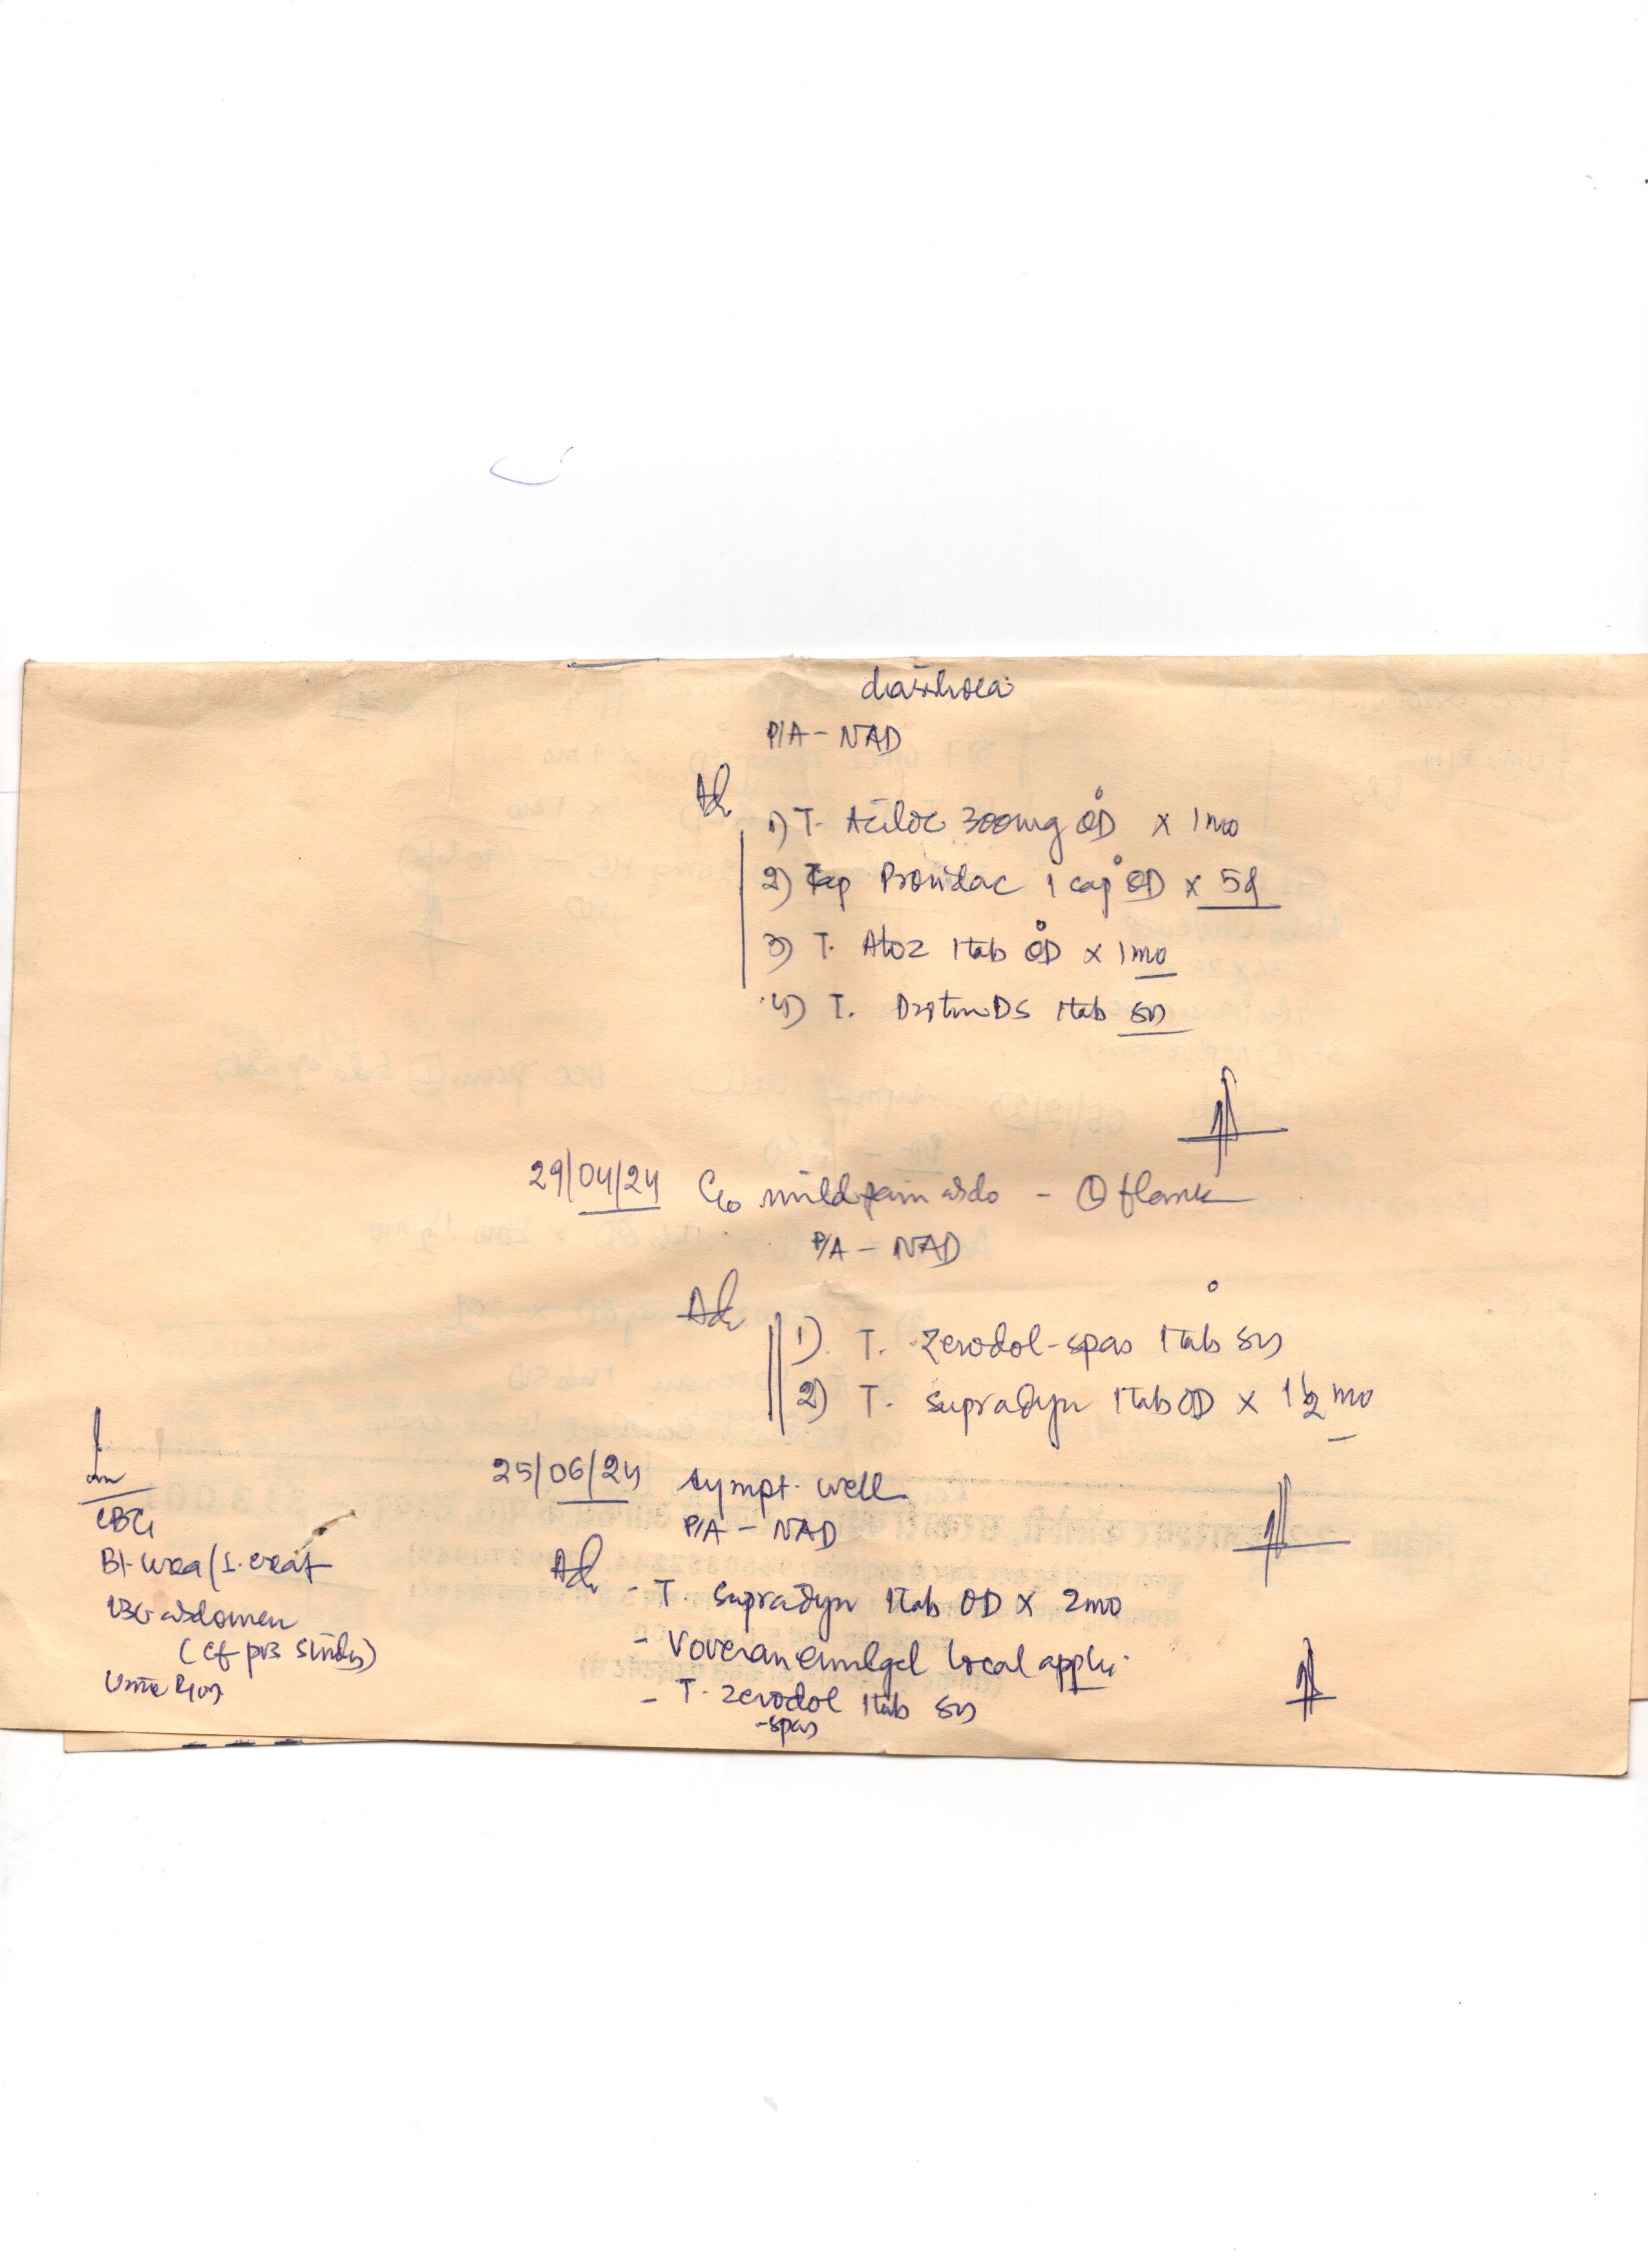 diarrhoea
P/A - NAD
Adv
1) T. Aciloc 300mg OD x 1 mo
2) Cap Providac 1 cap OD x 5d
3) T. Atoz 1tab OD x 1mo
4) T. Drotin DS 1tab
29/04/24 C/o mild pain abdo - (L) flank
P/A - NAD
Adv
1) T. Zerodol-spas 1tab
2) T. Supradyn 1tab OD x 1 1/2 mo
25/06/24 sympt. well
P/A - NAD
Adv - T. Supradyn 1tab OD x 2mo
- Voveran emulgel local appli.
- T. Zerodol 1tab
-spas
CBC
Bl. urea / S. creat
USG abdomen
Urine R/M